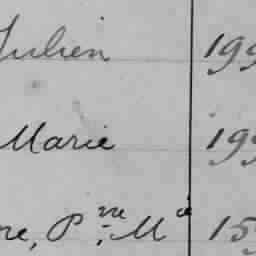 Julien 199
Marie 199
re, P.re M.ie 15